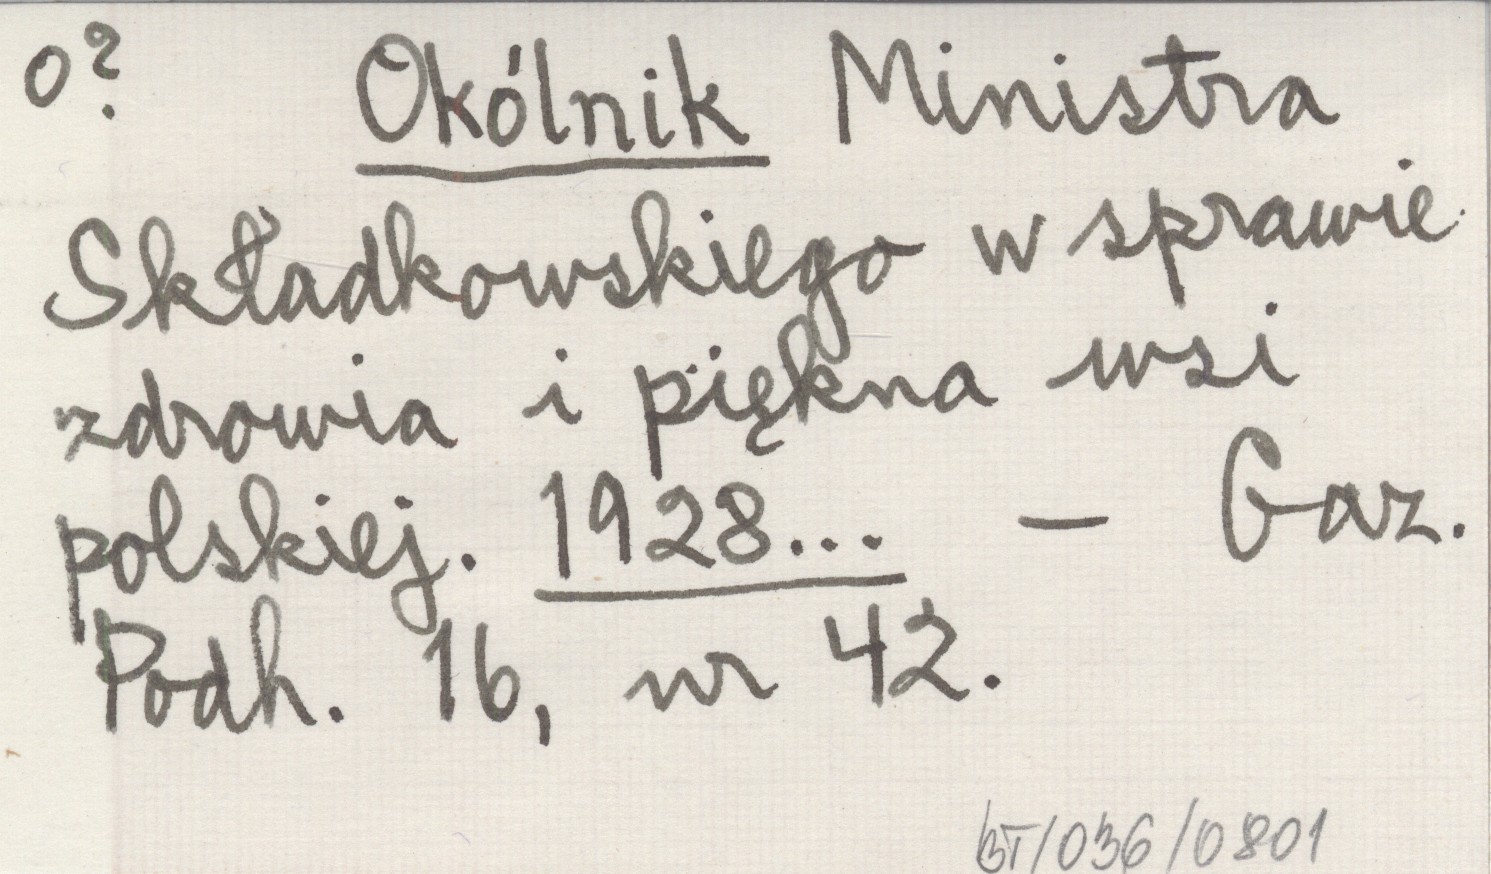 o? Okólnik Ministra
Składkowskiego w sprawie
zdrowia i piękna wsi
polskiej. 1928... — Gaz.
Podh. 16, nr 42.
BT/036/0801